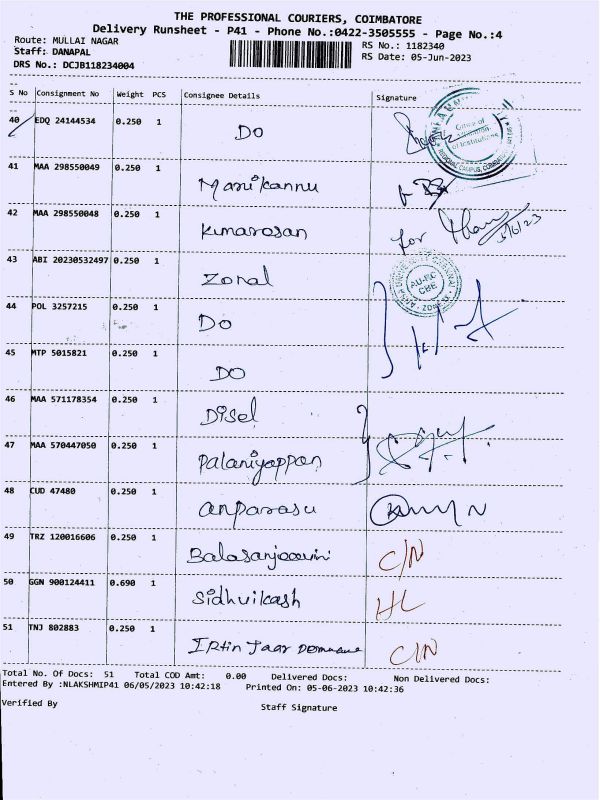 THE PROFESSIONAL COURIERS, COIMBATORE
Delivery Runsheet - P41 - Phone No.:0422-3505555 - Page No.:4
Route: MULLAI NAGAR RS No.: 1182340
Staff: DANAPAL RS Date: 05-Jun-2023
DRS No.: DCJB118234004
S No Consignment No Weight PCS Consignee Details Signature
40 EDQ 24144534 0.250 1 DO
41 MAA 298550049 0.250 1 Manikannu
42 MAA 298550048 0.250 1 Kumarasan for 5/6/23
43 ABI 20230532497 0.250 1 Zonal AU-RC CBE
44 POL 3257215 0.250 1 DO
45 MTP 5015821 0.250 1 DO
46 MAA 571178354 0.250 1 Disel
47 MAA 570447050 0.250 1 Palaniyappan
48 CUD 47480 0.250 1 anparasu
49 TRZ 120016606 0.250 1 C/N
50 GGN 900124411 0.690 1 Sidhvikash HL
51 TNJ 802883 0.250 1 C/N
Total No. Of Docs: 51 Total COD Amt: 0.00 Delivered Docs: Non Delivered Docs:
Entered By :NLAKSHMIP41 06/05/2023 10:42:18 Printed On: 05-06-2023 10:42:36
Verified By Staff Signature